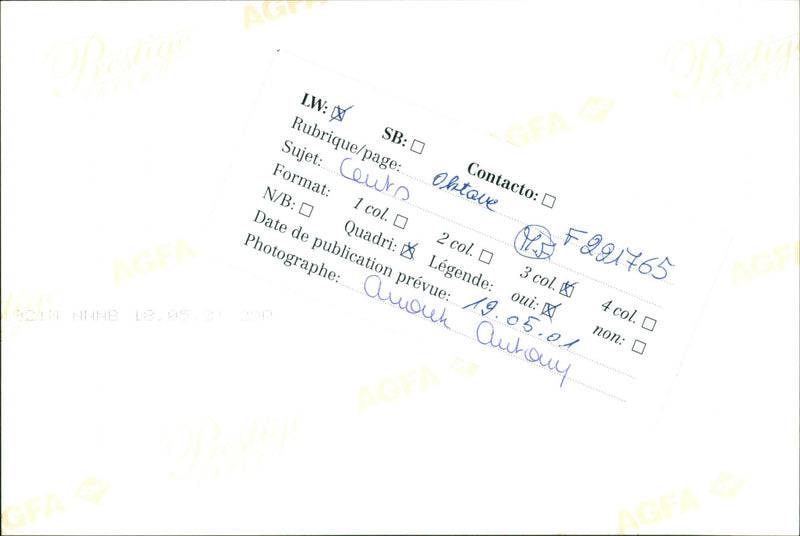 AGFA
Prestige
PAPER
Prestige
PAPER
AGFA
LW: ☒ SB: ☐ Contacto: ☐
Rubrique/page: Oktave
Sujet: M.J F221765
Format: 1 col. ☐ 2 col. ☐ 3 col. ☒ 4 col. ☐
N/B: ☐ Quadri: ☒ Légende: oui: ☒ non: ☐
Date de publication prévue: 19.05.01
Photographe: Antony
AGFA
AGFA
AGFA
Prestige
PAPER
AGFA
AGFA